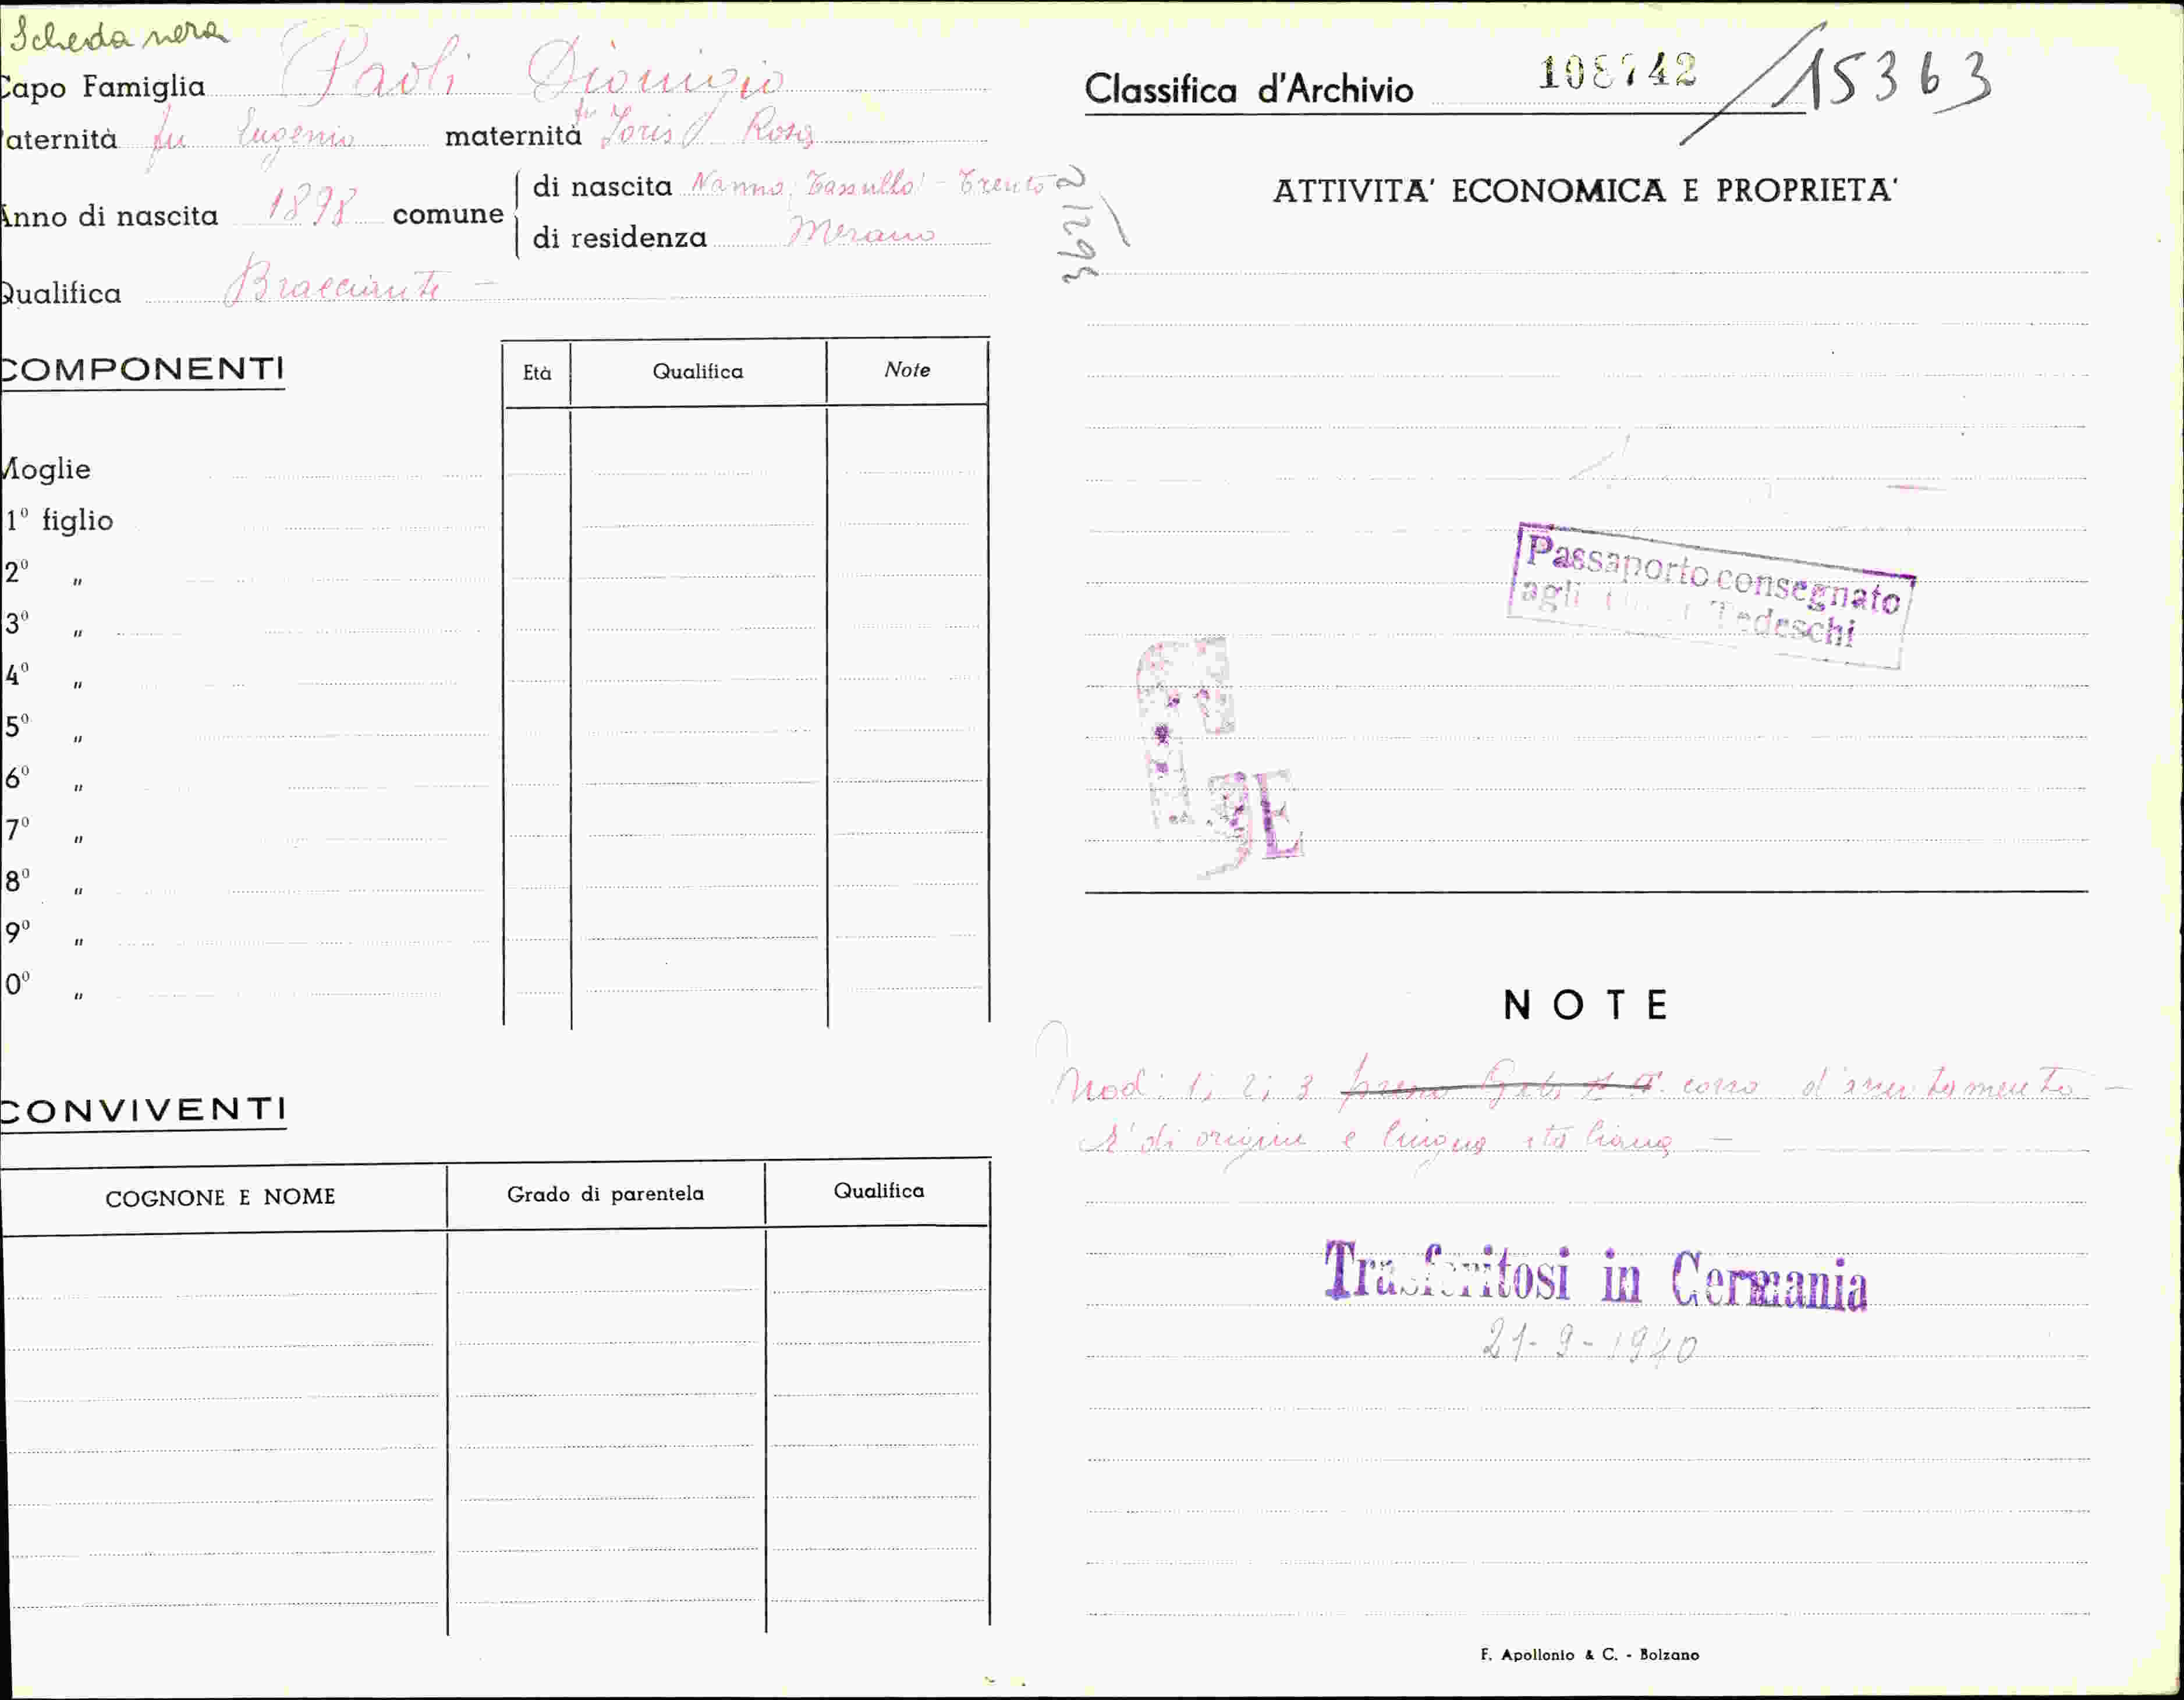 Scheda nera
Capo Famiglia Paoli Dionigio
aternità fu Eugenio maternità fu Joris Rosa
Anno di nascita 1898 comune di nascita Nanno, Tassullo - Trento
di residenza Merano
Qualifica Bracciante -
COMPONENTI
Età Qualifica Note
Moglie
1º figlio
2º "
3º "
4º "
5º "
6º "
7º "
8º "
9º "
0º "
CONVIVENTI
COGNONE E NOME Grado di parentela Qualifica
Classifica d'Archivio /15363
ATTIVITA' ECONOMICA E PROPRIETA'
Passaporto consegnato
agli Tedeschi
NOTE
Mod: 1, 2, 3 corso d'
E' di origine e lingua italiana -
Trasferitosi in Germania
21-9-1940
F. Apollonio & C. - Bolzano